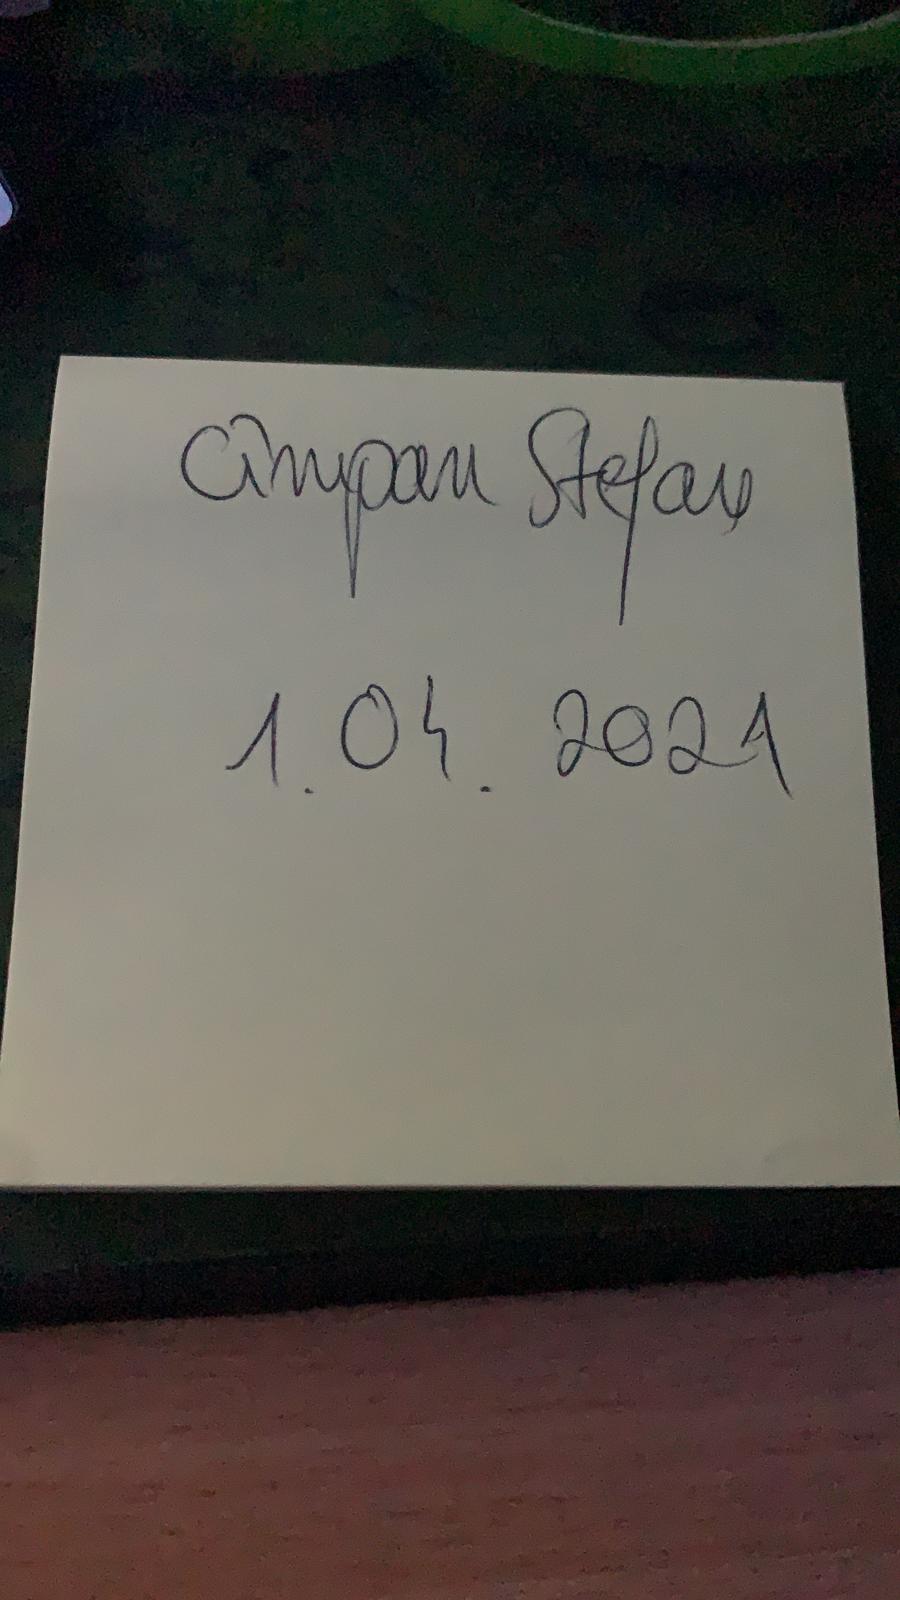 Cîmpan Stefan
1.04.2021